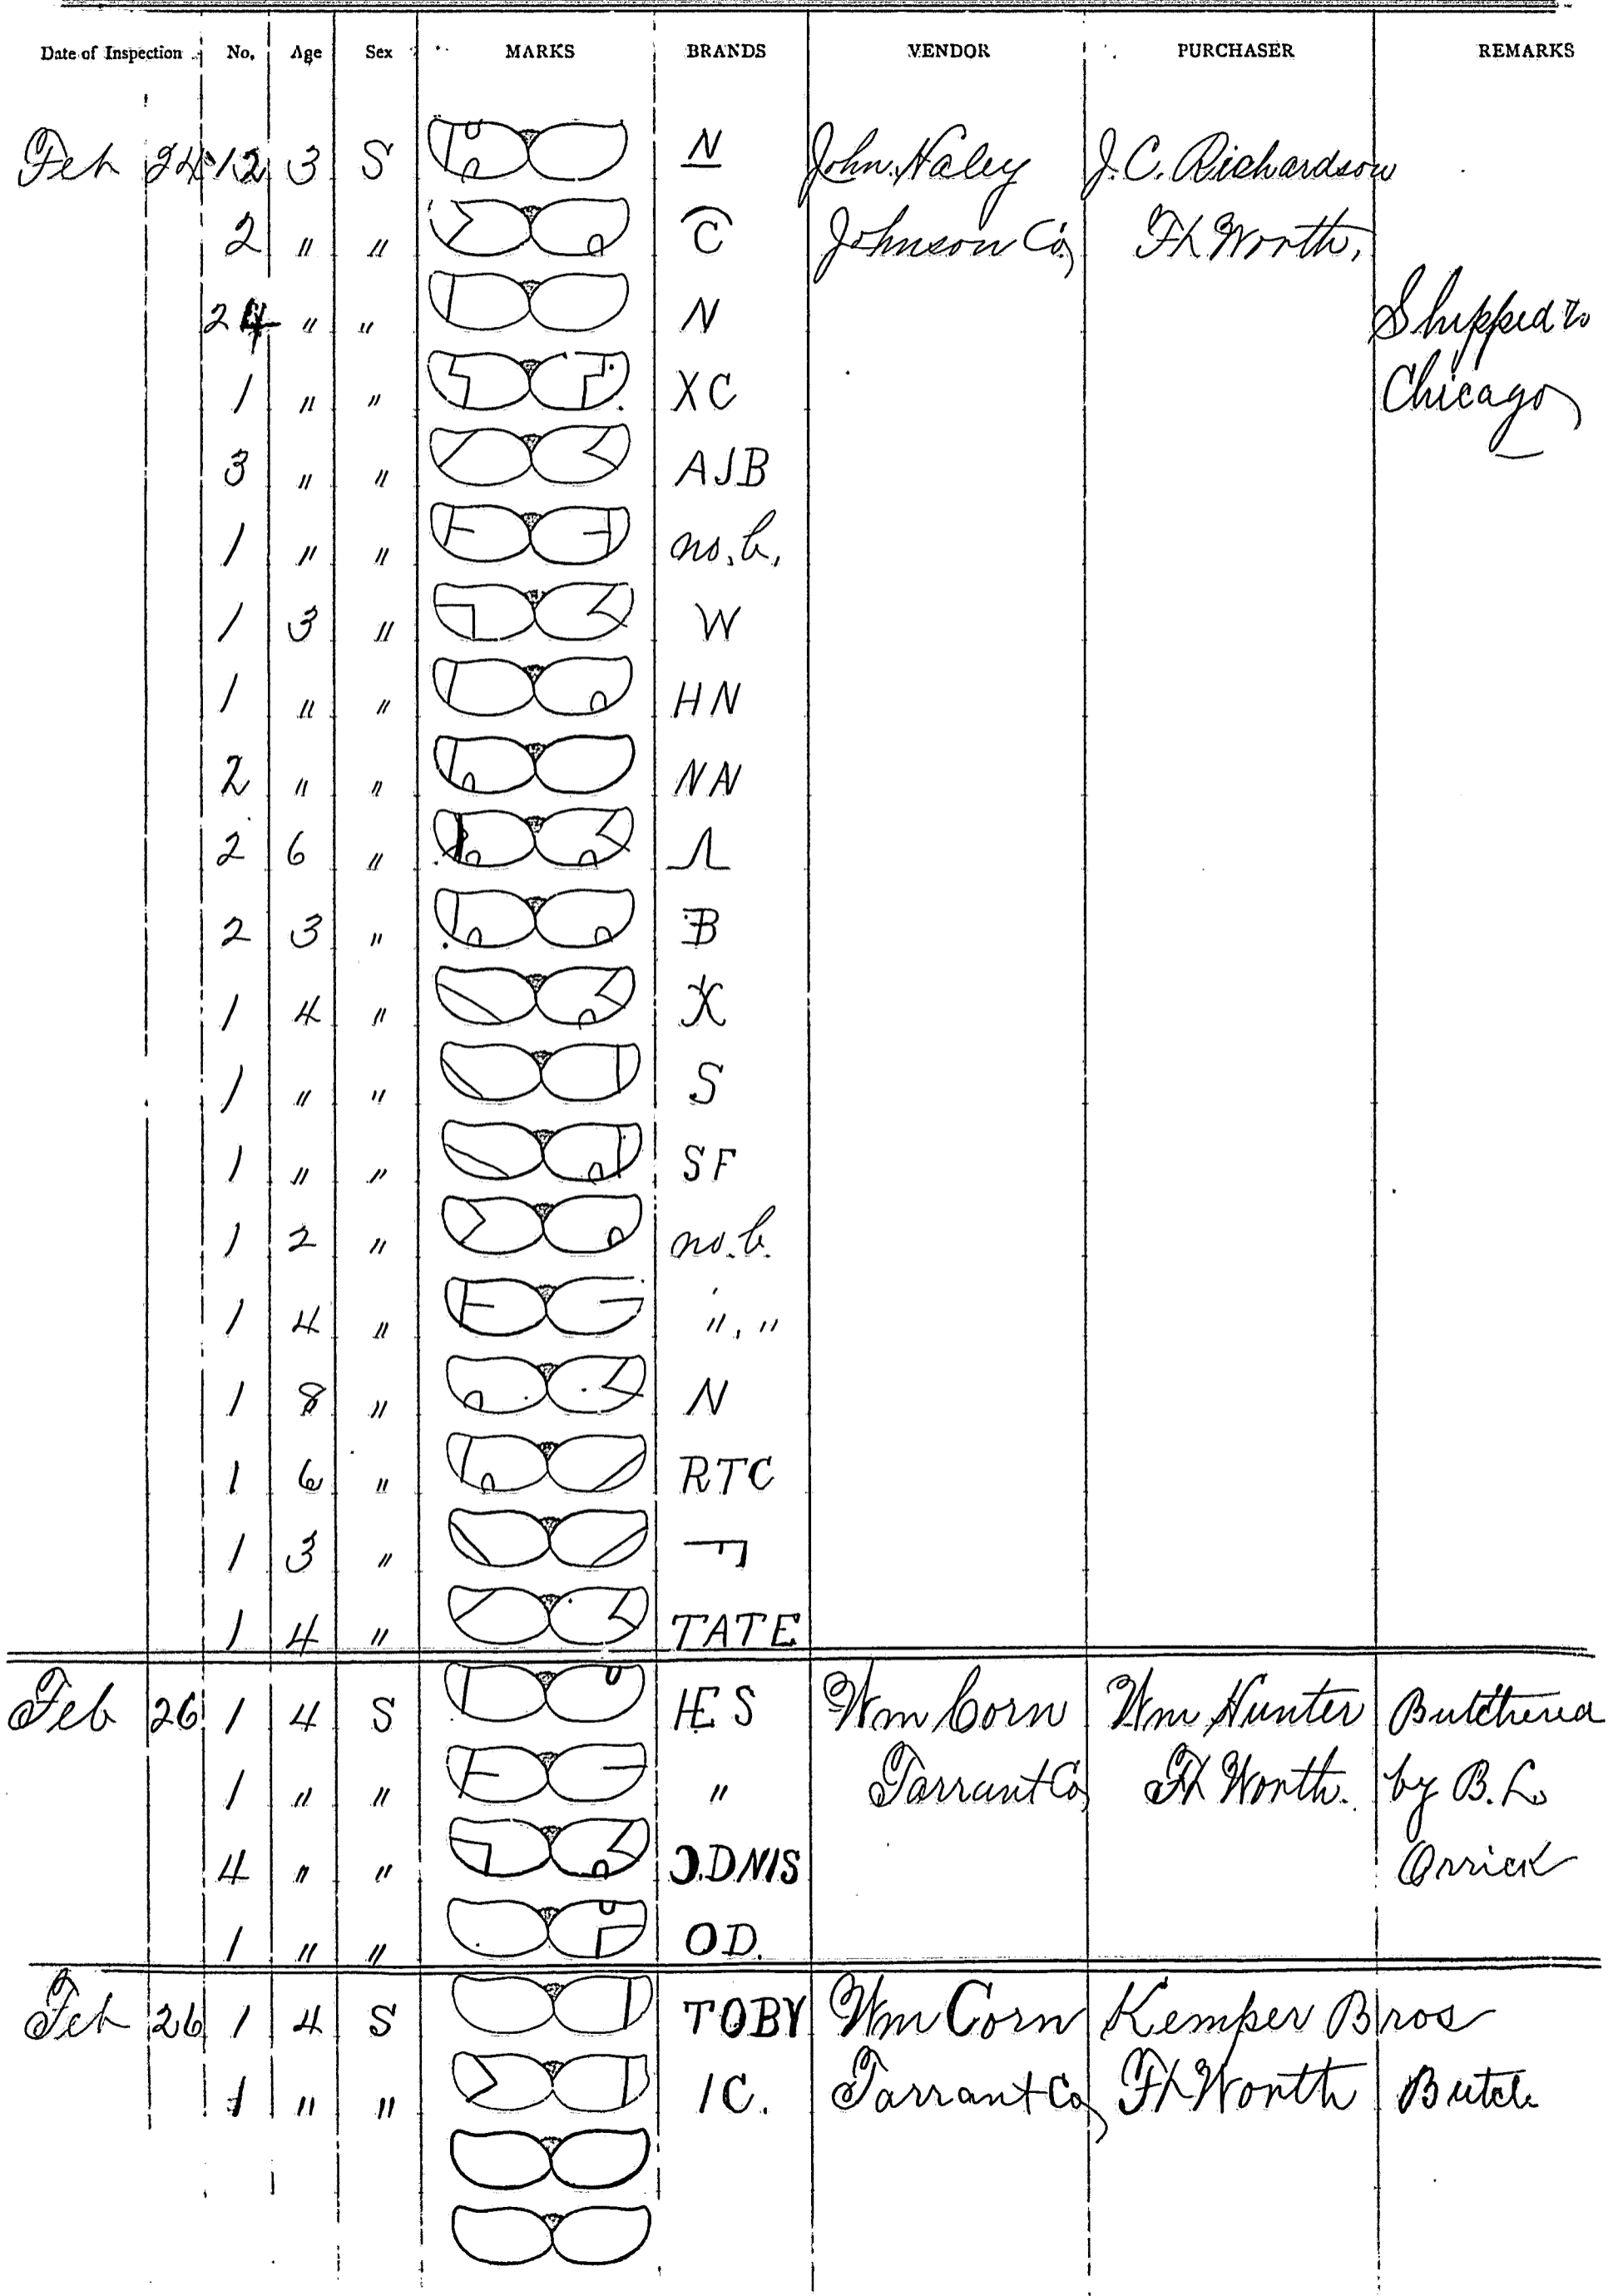 Date of Inspection No. Age Sex MARKS BRANDS VENDOR PURCHASER REMARKS
Feb 24 12 3 S N John Haley J.C. Richardson
2 " " C Johnson Co, Ft Worth,
24 " " N Shipped to
1 " " XC Chicago
3 " " AJB
1 " " no. b.
1 3 " W
1 " " HN
2 " " NN
2 6 "
2 3 " B
1 4 " X
1 " " S
1 " " SF
1 2 " no. b.
1 4 " ", "
1 8 " N
1 6 " RTC
1 3 "
1 4 " TATE
Feb 26 1 4 S HES Wm Corn Wm Hunter Butchered
1 " " " Tarrant Co, Ft Worth. by B. L.
4 " " DNIS Orrick
1 " " OD.
Feb 26 1 4 S TOBY Wm Corn Kemper Bros
1 " " IC. Tarrant Co, Ft Worth Butch